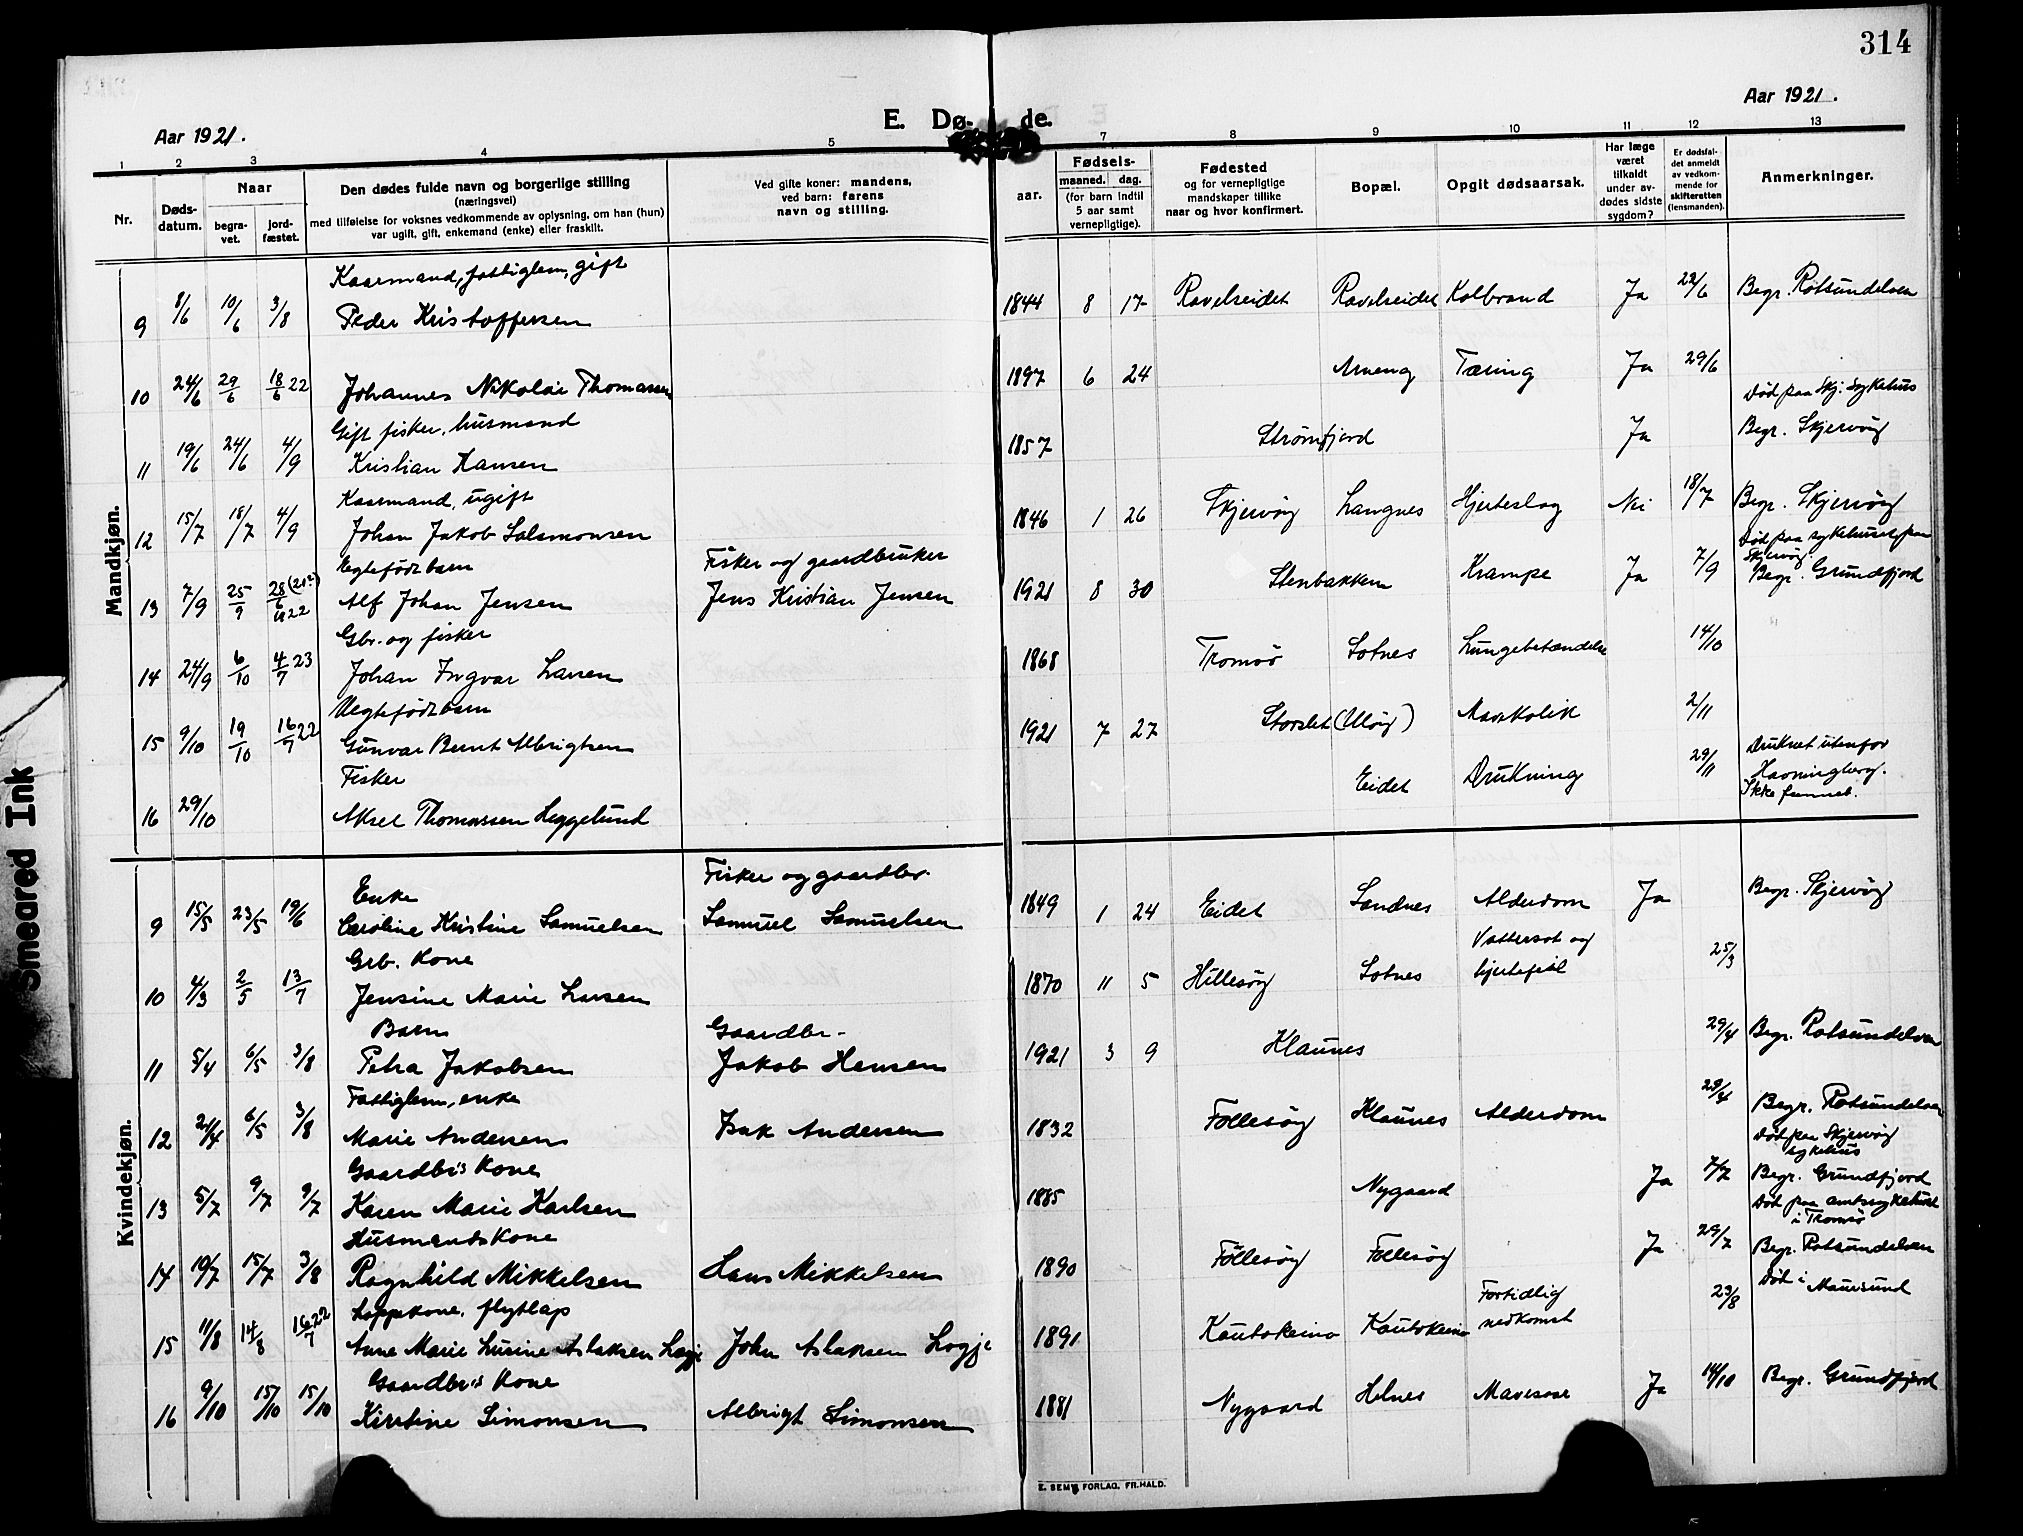 314
Aar 1921.
Aar 1921.
E. Dø- de.
1 2 3 4 5 7 8 9 10 11 12 13
Nr.
Døds-
datum.
Naar
begra-
vet.
jord-
fæstet.
Den dødes fulde navn og borgerlige stilling
(næringsvei)
med tilføielse for voksnes vedkommende av oplysning, om han (hun)
var ugift, gift, enkemand (enke) eller fraskilt.
Ved gifte koner: mandens,
ved barn: farens
navn og stilling.
aar.
Fødsels-
maaned. dag.
(for barn indtil
5 aar samt
vernepligtige).
Fødested
og for vernepligtige
mandskaper tillike
naar og hvor konfirmert.
Bopæl.
Opgit dødsaarsak.
Har læge
været
tilkaldt
under av-
dødes sidste
sygdom?
Er dødsfal-
det anmeldt
av vedkom-
mende for
skifteretten
(lensmanden).
Anmerkninger.
Mandkjøn.
Kaarmand, fattiglem, gift
9 8/6 10/6 3/8 Peder Kristoffersen 1844 8 17 Ravelseidet Ravelseidet Kolbrand Ja 22/6 Begr. Rotsundelven
10 24/6 29/6 18/6 22 Johannes Nikolai Thomassen 1897 6 24 Arneng Tæring Ja 29/6
Død paa Skj. Sykehus
Gift fisker, husmand
11 19/6 24/6 4/9 Kristian Hansen 1857 Strømfjord Ja Begr. Skjervøy
Kaarmand, ugift
12 15/7 18/7 4/9 Johan Jakob Salamonsen 1846 1 26 Skjervøy Langnes Hjerteslag Nei 18/7 Begr. Skjervøy
Død paa sykehuset paa
Skjervøy
Ægtefødt barn Fisker og gaardbruker
13 7/9 25/9 28/6 22 Alf Johan Jensen Jens Kristian Jensen 1921 8 30 Stenbakken Krampe Ja 7/9 Begr. Grundfjord
Gbr. og fisker
14 24/9 6/10 4/7 23 Johan Ingvar Larsen 1868 Tromsø Sotnes Lungebetændelse 14/10
Uegtefødt barn
15 9/10 19/10 16/7 22 Gunvar Bernt Albrigtsen 1921 7 27 Storslet (Uløy) Mavekolik 2/11
Fisker
16 29/10 Aksel Thomassen Leggelund Eidet Drukning 29/11 Druknet utenfor
Havningberg.
Ikke funnet.
Kvindekjøn.
Enke Fisker og gaardbr.
9 15/5 23/5 19/6 Caroline Kristine Samuelsen Samuel Samuelsen 1849 1 24 Eidet Sandnes Alderdom Ja Begr. Skjervøy
Grb. Kone
10 4/3 2/5 13/7 Jensine Marie Larsen 1870 11 5 Hillesøy Sotnes Vattersot og
hjertefeil 25/3
Barn Gaardbr.
11 5/4 6/5 3/8 Petra Jakobsen Jakob Hansen 1921 3 9 Klaunes 29/4 Begr. Rotsundelven
Fattiglem, enke
12 24/4 6/5 3/8 Marie Andersen Isak Andersen 1832 Follesøy Klaunes Alderdom 29/4 Begr. Rotsundelven
Død paa Skjervøy
sykehus
Gaardbr's Kone
13 5/7 9/7 9/7 Karen Marie Karlsen 1885 Nygaard Ja 7/7 Begr. Grundfjord
Død paa amtssykehuset
i Tromsø
Husmands Kone
14 10/7 15/7 3/8 Ragnhild Mikkelsen Hans Mikkelsen 1890 Follesøy Follesøy Ja 29/7 Begr. Rotsundelven
Lappekone, flytlap
15 11/8 14/8 16/7 22 Anne Marie Lusine Aslaksen Logje John Aslaksen Logje 1891 Kautokeino Kautokeino Fortidlig
nedkomst 23/8 Død i Maursund
Gaardbr's Kone
16 9/10 15/10 15/10 Kirstine Simonsen Albrigt Simonsen 1881 Nygaard Helnes Mavesaar Ja 14/10 Begr. Grundfjord
E. SEM'S FORLAG, FR.HALD.
Smeared Ink